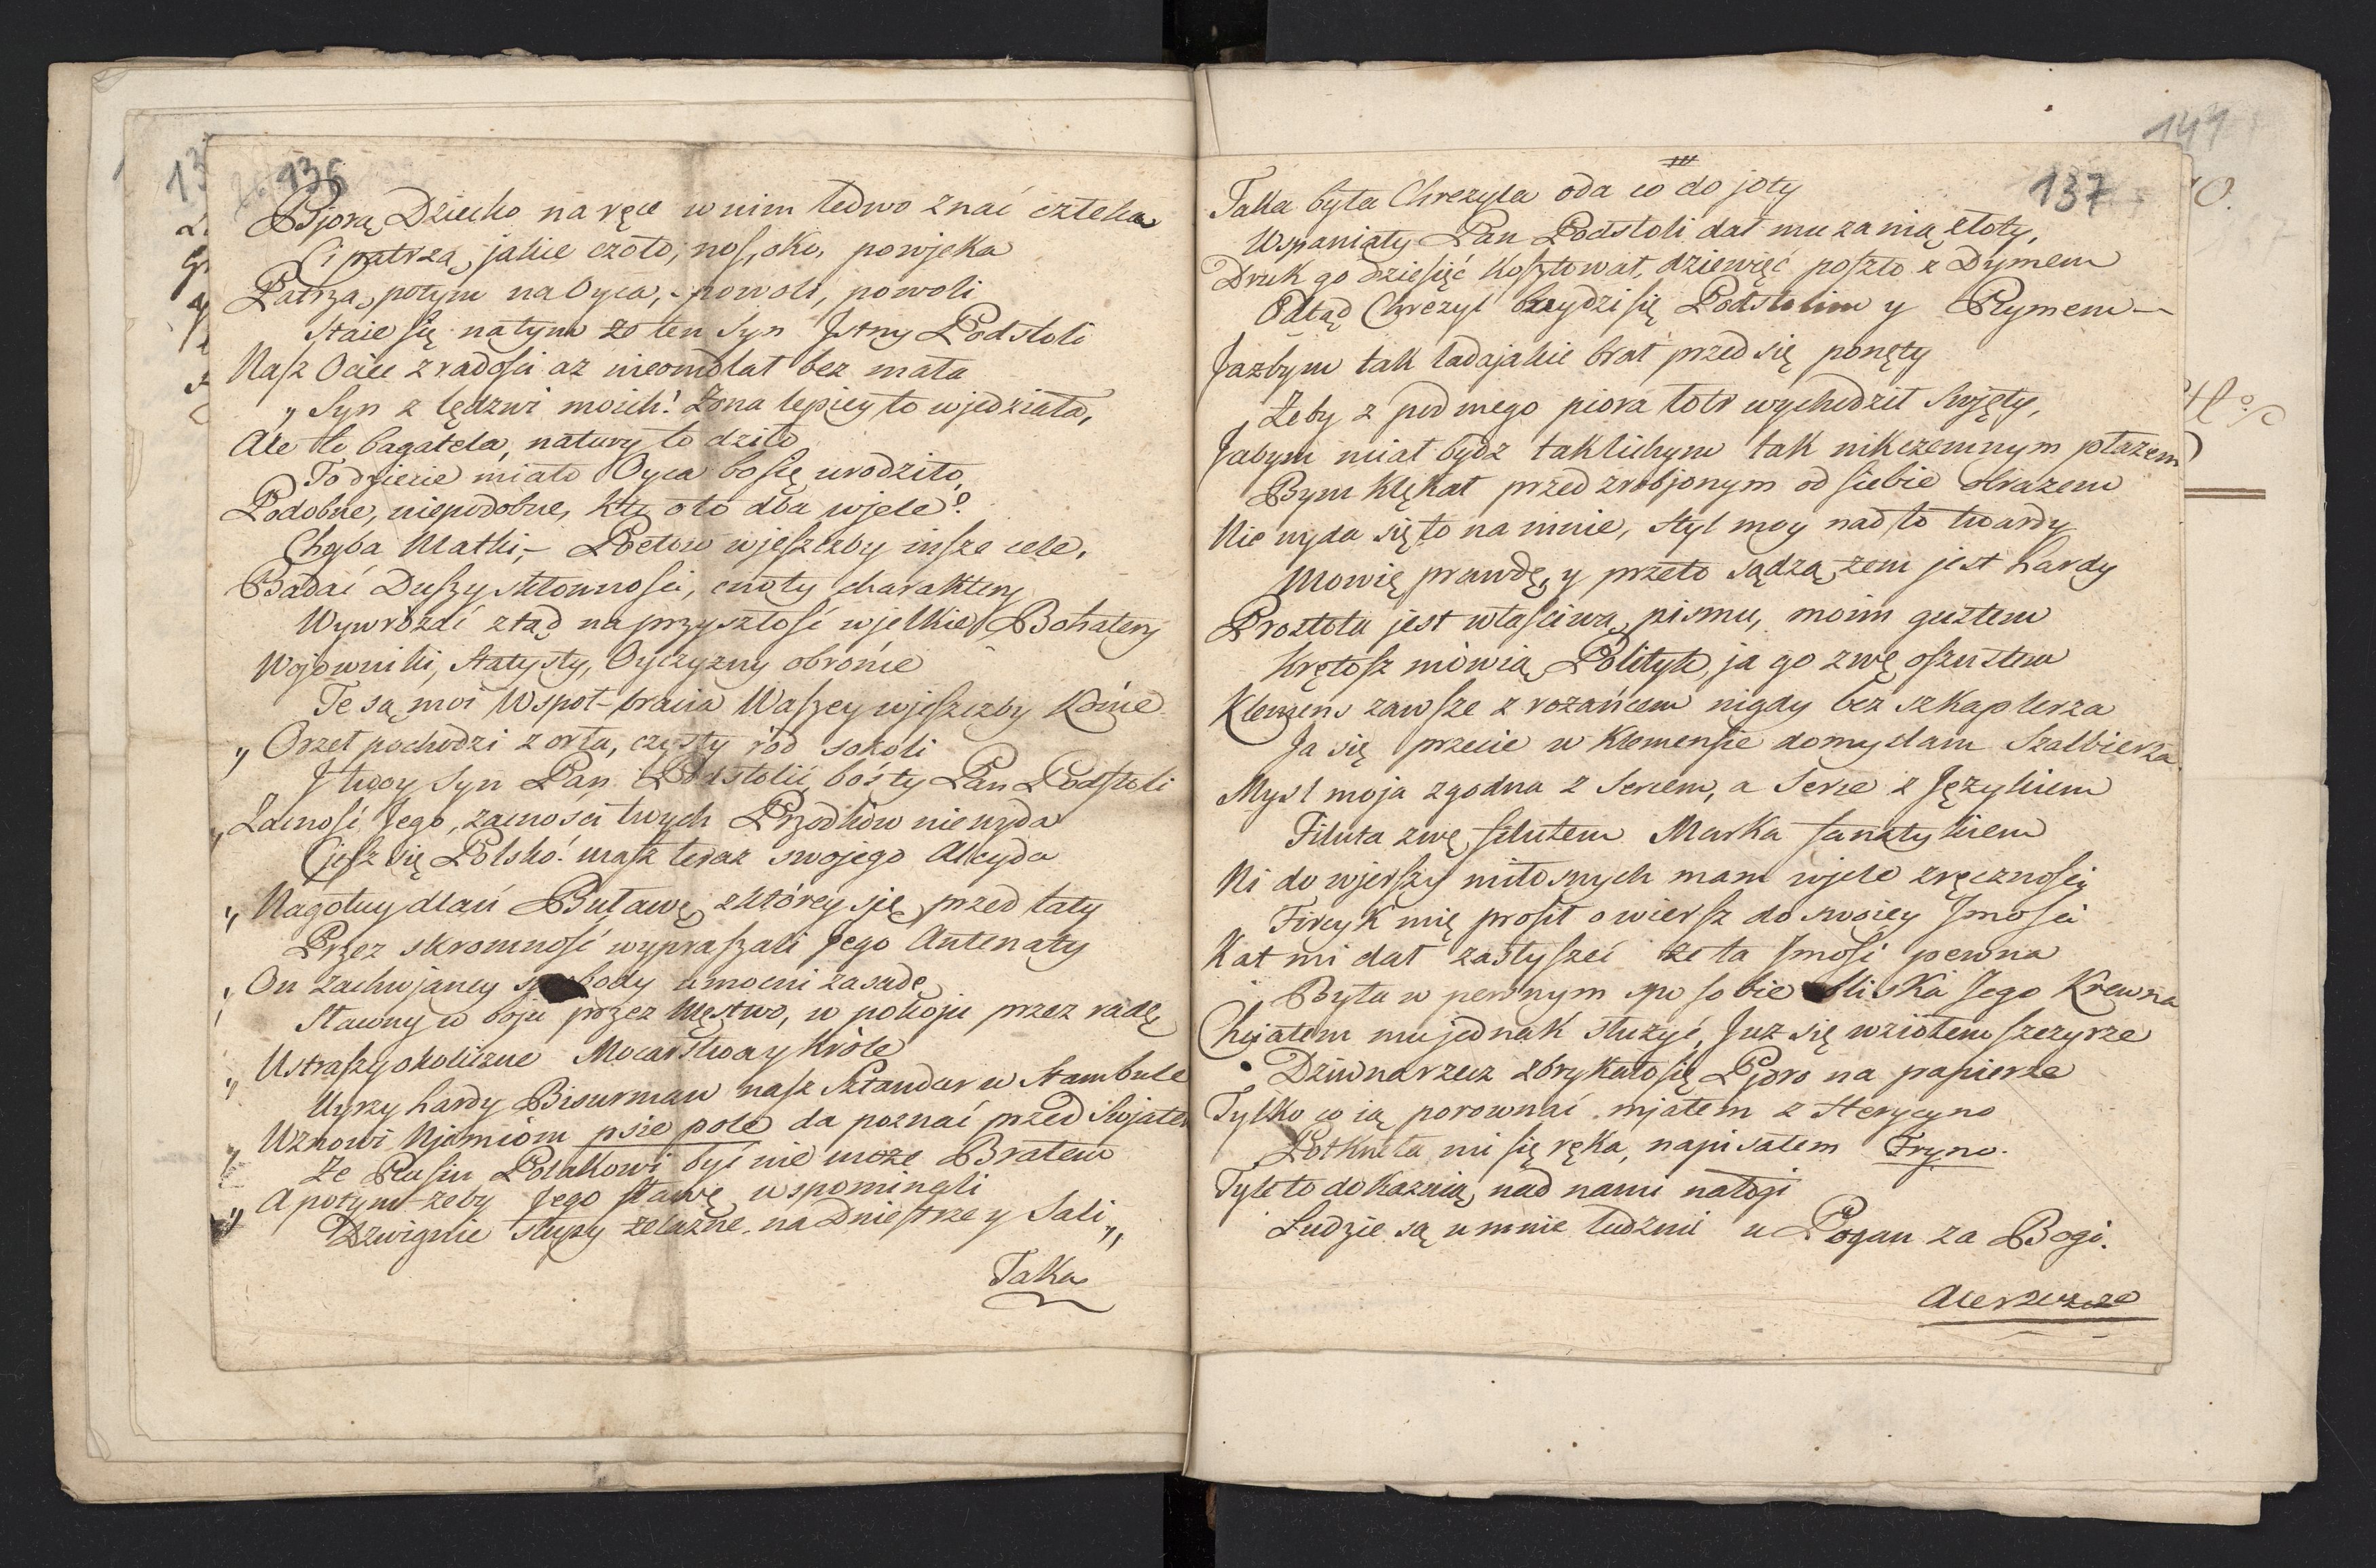 136
Bjorą Dziecko na ręce w nim ledwo znać człeka
Ci patrzą, jakie czoło, nos, oko, powjeka
Patrzą, potym na Oyca, – powoli, powoli
Staie się na tym że ten Syn Jstny Podstoli
Nasz Ociec z radości aż nieomdlał bez mała
„ Syn z lędzwi moich! Żona lepiey to wjedziała,
Ale to bagatela, natury to dziło
To dziecie miało Oyca bo się urodziło,
Podobne, niepodobne, kto o to dba wjele?
Chyba Matki, – Poetow wjeszczby insze cele,
Badać Duszy skłonności, cnoty charaktery
Wywrożdć ztąd na przyszłość wjelkie Bohatery
Wojowniki, Statysty, Oyczyzny obrońce
Te są moi Wspoł-bracia Waszey wjeszczby Końce
„ Orzeł pochodzi z orła, czysty ród sokoli
J twoy Syn Pan Podstolic, boś ty Pan Podstoli
„ Zacność Jego, zacności twych Przodków nie wyda
Ciesz się Polsko! masz teraz swojego Alcyda
„ Nagotuy dlań Buławę, z którey się przed laty
Przez skromność wypraszali Jego Antenaty
„ On zachwjaney swobody umocni zasadę
Sławny w boju przez Męstwo, w pokoju przez radę
„ Ustraszy okoliczne Mocarstwa y Króle
Uyrzy hardy Bisurman nasz Sztandar w Stambule
„ Wznowi Njemiom psie pole da poznać przed Swjatem
Że Rusin Polakowi być nie może Bratem
„ A potym żeby Jego sławę wspominali
Dzwignie słupy żelazne na Dniestrze y Sali „
Taka
141
137
Taka była Chrezyla oda co do joty
Wspaniały Pan Podstoli dał mu za nią złoty,
Druk go dziesięć kosztował, dziewięć poszło z Dymem
Odtąd Chrezyl brzydzi się Podstolim y Rymem –
Jażbym tak ladajakie brał przed się ponęty
Żeby z pod mego piora łotr wychodził Swjęty,
Jabym miał bydz tak lichym tak nikczemnym płazem
Bym klękał przed zrobjonym od siebie obrazem
Nie wyda się to na mnie, styl moy nad to twardy
Mowię prawdę, y przeto sądzą żem jest hardy
Prostota jest własciwa, pismu, moim gustem
Krętosz mówią Polityk, ja go zwę oszustem
Klemens zawsze z rożańcem nigdy bez szkaplerza
Ja się przecie w Klemensie domyslam Szalbierza
Mysl moja zgodna z Sercem, a Serce z Językiem
Filuta zwę filutem Marka fanatykiem
Ni do wjerszy miłosnych mam wjele zręcznosci
Fircyk mię prosił o wiersz do swoiey Jmosci
Kat mi dał zasłyszeć że ta Jmość pewna
Była w pewnym sposobie bliska Jego Krewna
Chciałem mu jednak służyć, Już się wziołem szczyrze
Dziwna rzecz zbrykało się Pjoro na papierze
Tylko co ią porownać mjałem z Herycyno
Potknęła mi się ręka, napisałem Fryno.
Tyle to dokaznią, nad nami nałogi
Ludzie są u mnie ludźmi u Pogan za Bogi.